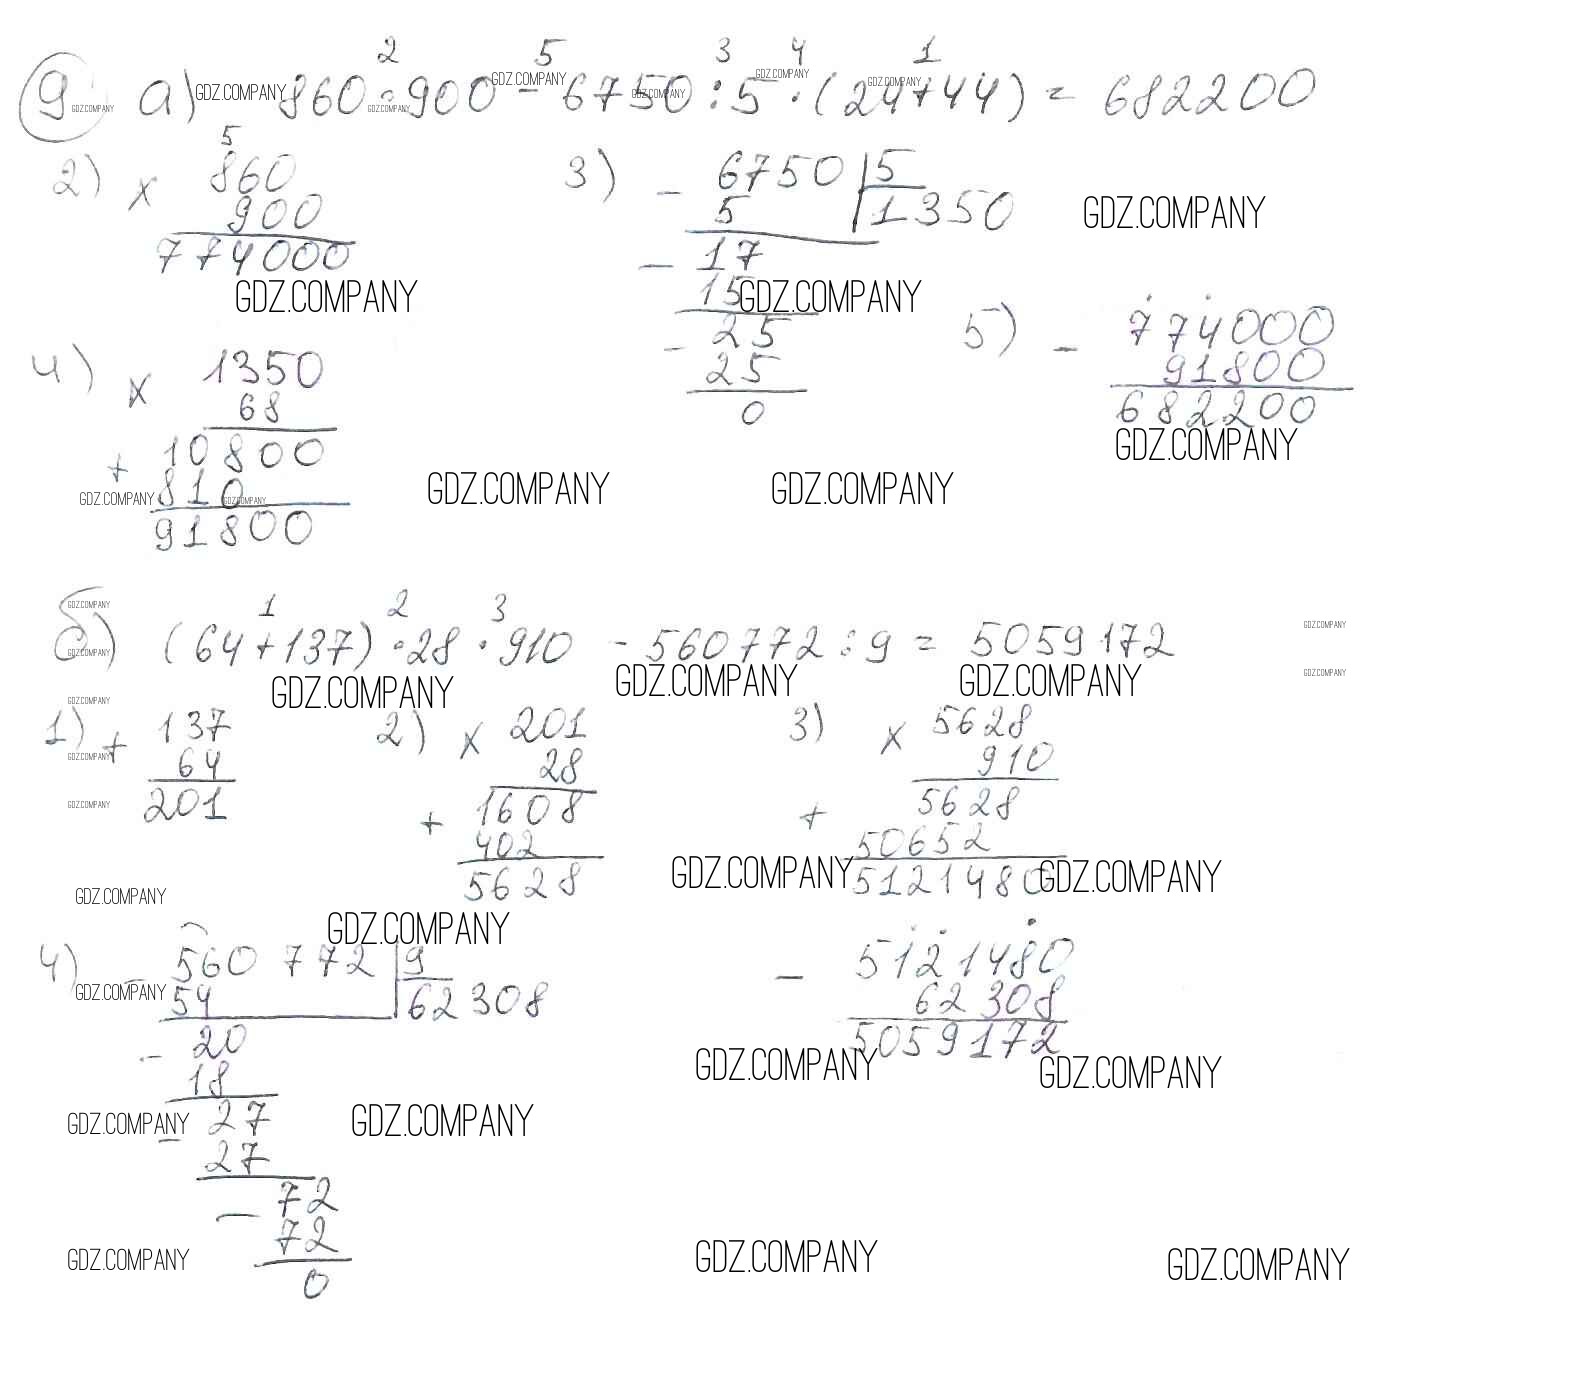 2 5 3 4 1
9 а) 860 · 900 - 6750 : 5 · (24+44) = 682200
5
2) × 860 3) - 6750 | 5
900 5 1350
774000 - 17
15
5) - 774000
- 25 91800
4) × 1350 25 682200
68 0
+ 10800
810
91800
1 2 3
б) (64+137) · 28 · 910 - 560772 : 9 = 5059172
1) + 137 2) × 201 3) × 5628
64 28 910
201 + 1608 + 5628
402 50652
5628 5121480
4) - 560772 | 9 - 5121480
54 62308 62308
- 20 5059172
18
- 27
27
- 72
72
0
GDZ.COMPANY